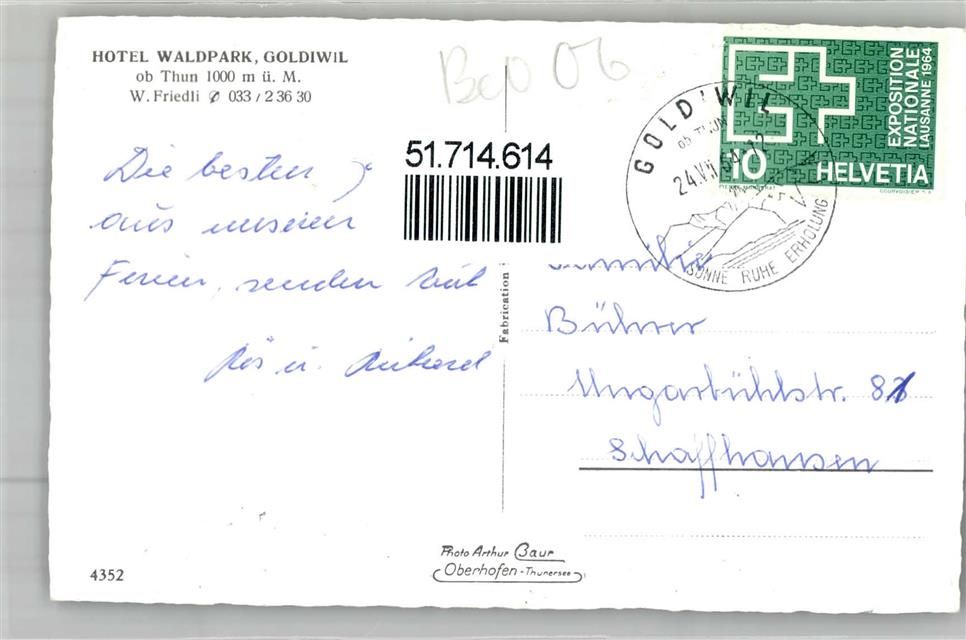 HOTEL WALDPARK, GOLDIWIL
ob Thun 1000 m ü. M.
W. Friedli ✆ 033 / 2 36 30
BeO 06
51.714.614
Die besten
aus unseren
Ferien, senden Euch
Rös u. Richard
Fabrication
EXPOSITION
NATIONALE
LAUSANNE 1964
10 HELVETIA
COURVOISIER S.A.
GOLDIWIL
ob THUN
24.VII.64-12
SONNE RUHE ERHOLUNG
Familie
Bührer
Ungarbühlstr.
Schaffhausen
4352
Photo Arthur Baur
Oberhofen - Thunersee